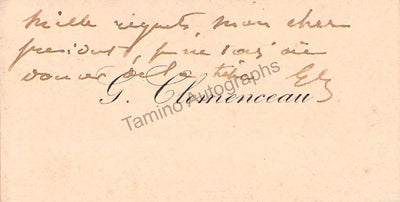 Mille regrets, mon cher
président, je ne sais où
donner de la tête.
G. Clemenceau
Tamino Autographs